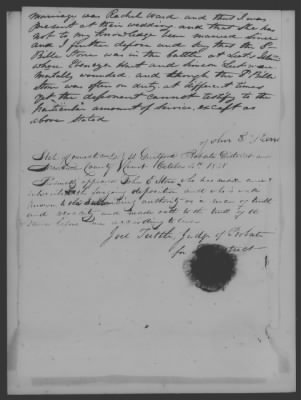 marriage was Rachel Ward and that I was
present at their wedding and that she has
not to my knowledge been married since
and I further depose and say that the Sd
Bille Stone was in the battle at
when Ebenezer Hart and Simeon
mortally wounded and though the Sd Bille
Stone was often on duty at different times
yet the deponent cannot testify to the
particular amount of service, except as
above stated
John Stone
State of Connecticut Guilford Probate District
County October 1838
Personally appeared John Stone who has made and
the foregoing deposition and who is well
known to the authority as a man of truth
and veracity and made oath to the truth of the
same before me according to law
Joel Tuttle, Judge of Probate
for District